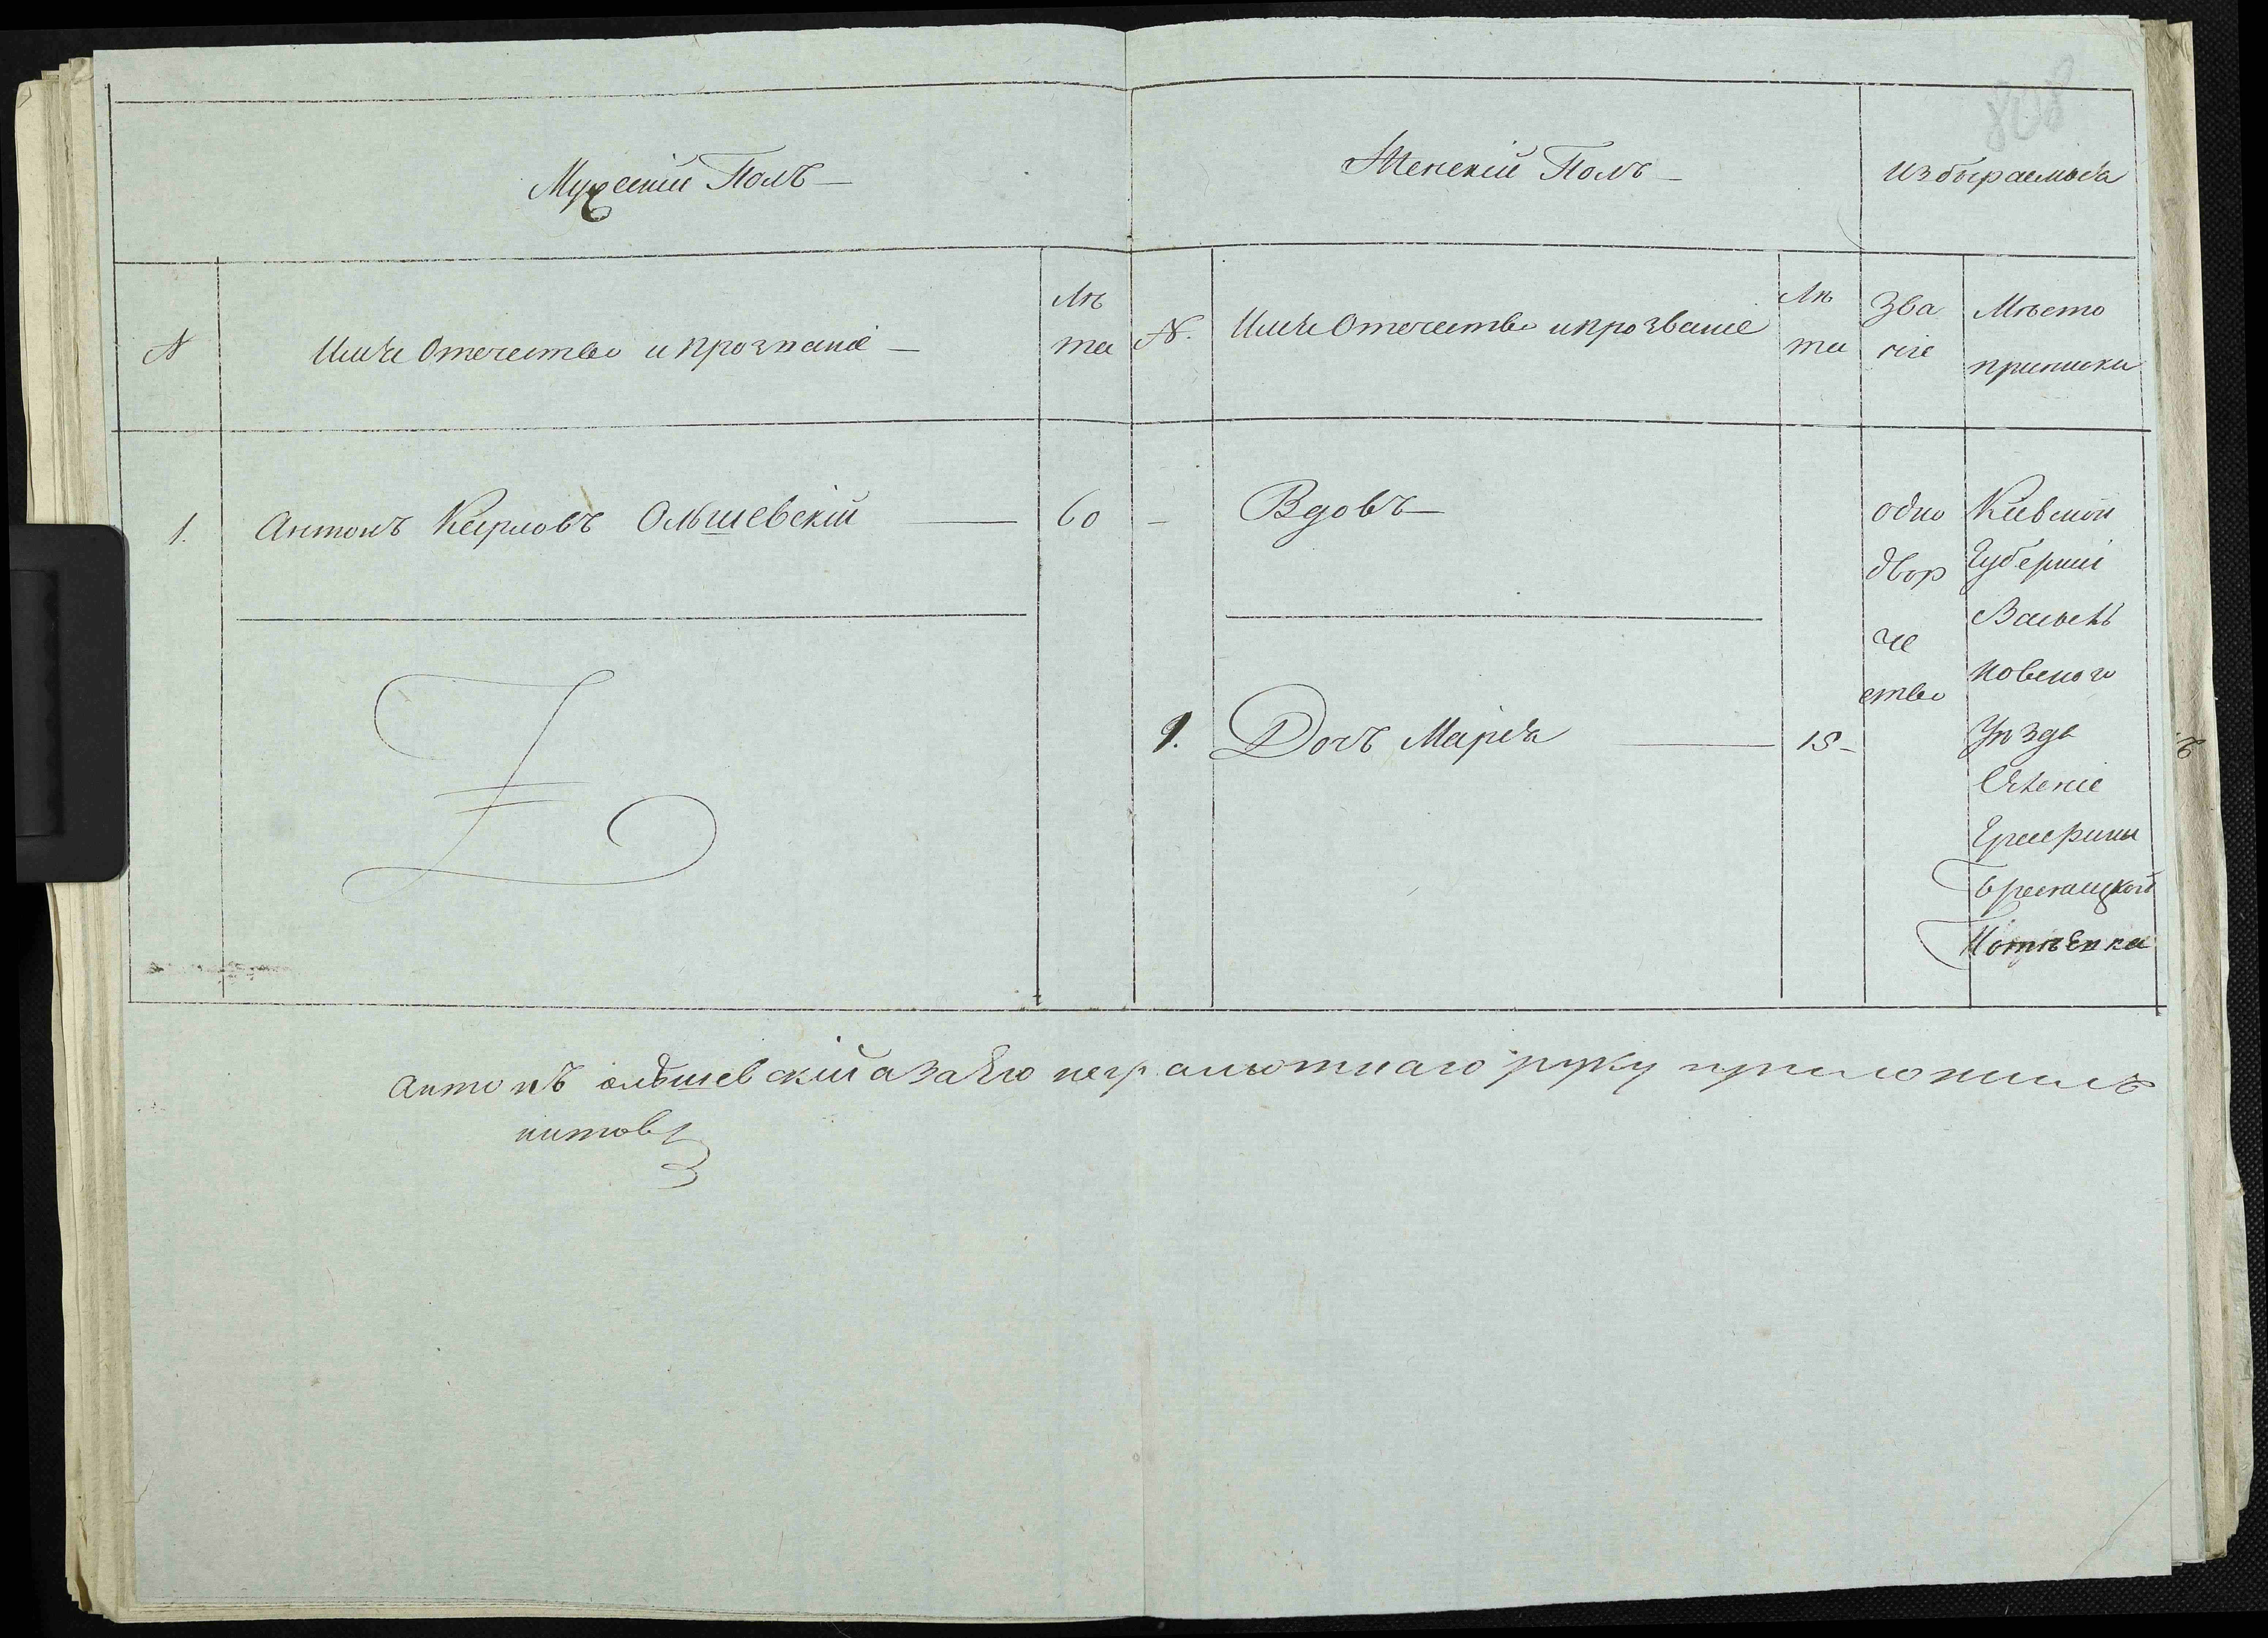 808
Мужескій Полъ —
Женскій Полъ —
Избыраемыя
№
Имя Отечество и прозваніе —
Лѣ
та
№.
Имя Отечество и прозваніе
Лѣ
та
Зва
ніе
Мѣсто
приписки
1.
Антонъ Карловъ Ольшевскій —
60
—
Вдовъ —
одно
двор
че
ство
Кіевской
Губерніи
Василь
ковского
Уѣзда
1.
Дочъ Марія —
18 —
Антонъ олшевскій а за Его неграмотнаго руку приложилъ